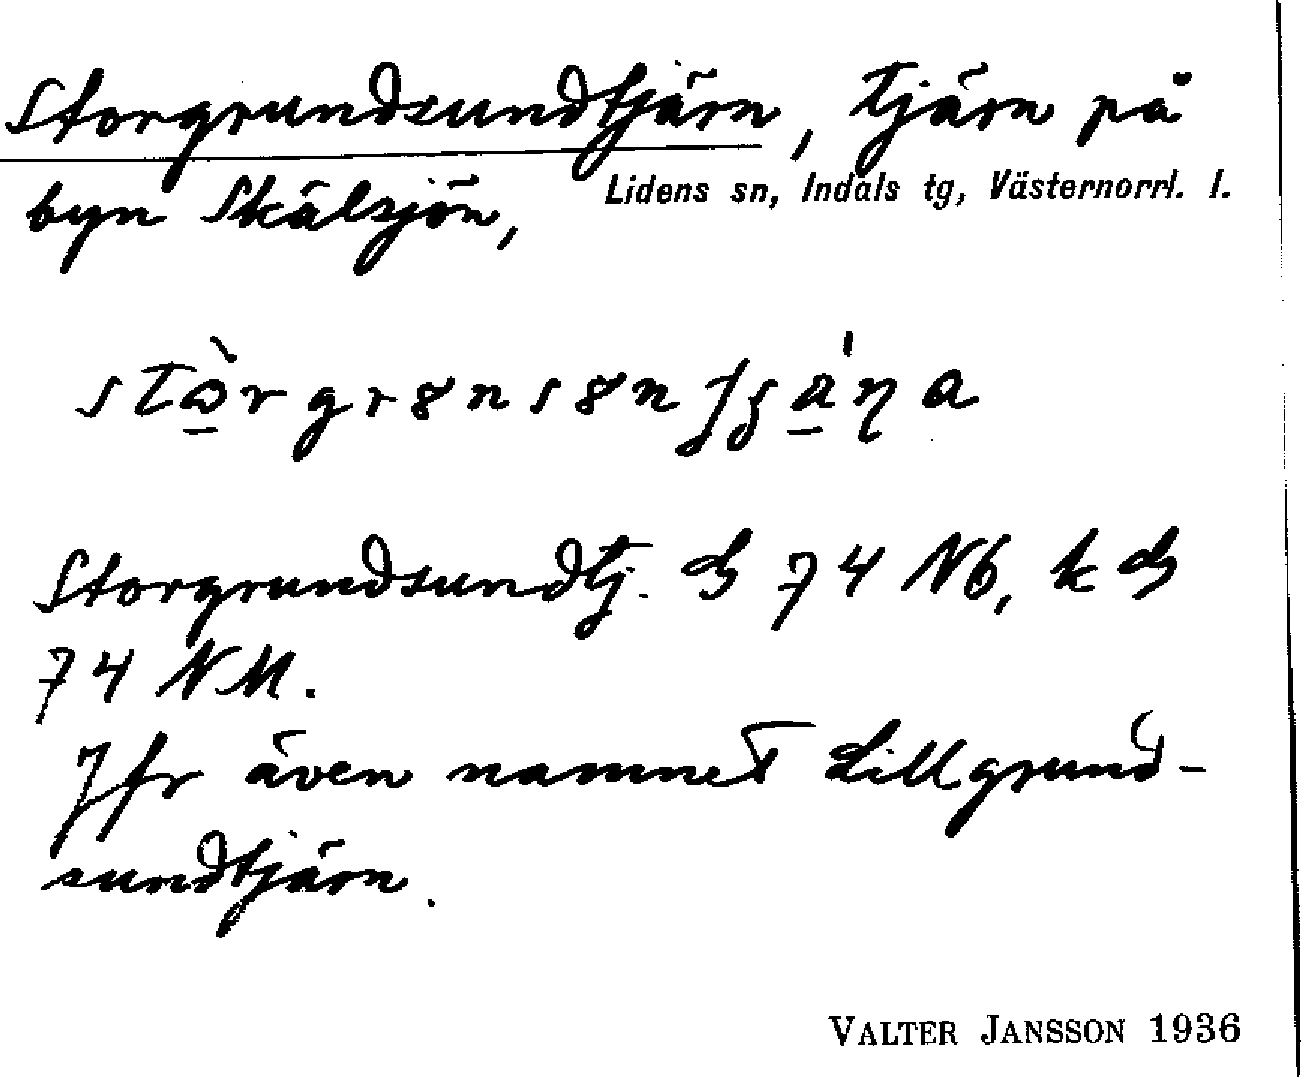 Storgrundsundtjärn, tjärn på
byn Skälsjön, Lidens sn, Indals tg, Västernorrl. l.
Storgrundsundtj. G 74 Nb, k G
74 NM.
Jfr även namnet Lillgrund-
sundtjärn.
VALTER JANSSON 1936